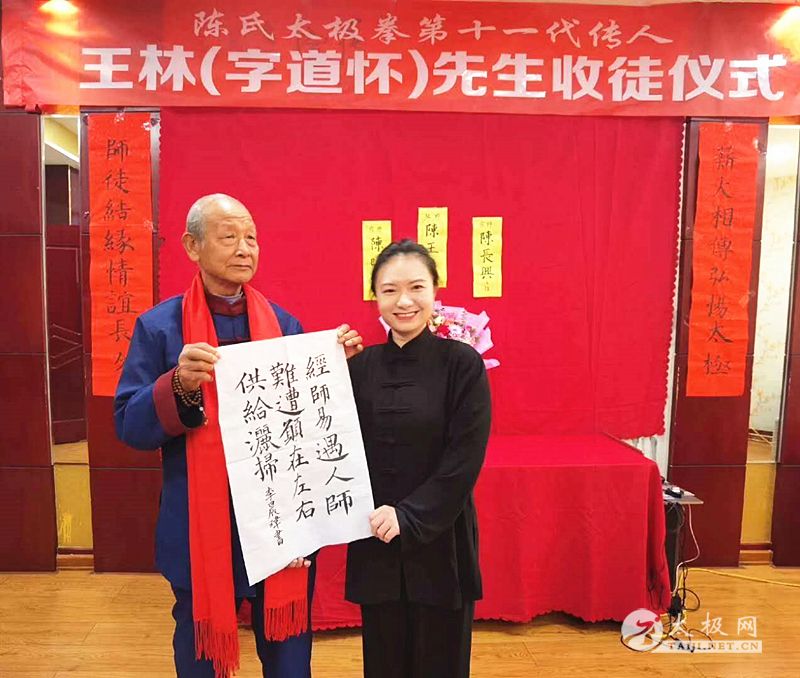 陈氏太极拳第十一代传人
王林(字道怀)先生收徒仪式
師徒結緣情誼長
薪火相傳弘惕太極
陳
陳王
陳長興
經師易遇人師
難遭願在左右
供給灑掃
李晨瑋書
太极网
TAIJI.NET.CN